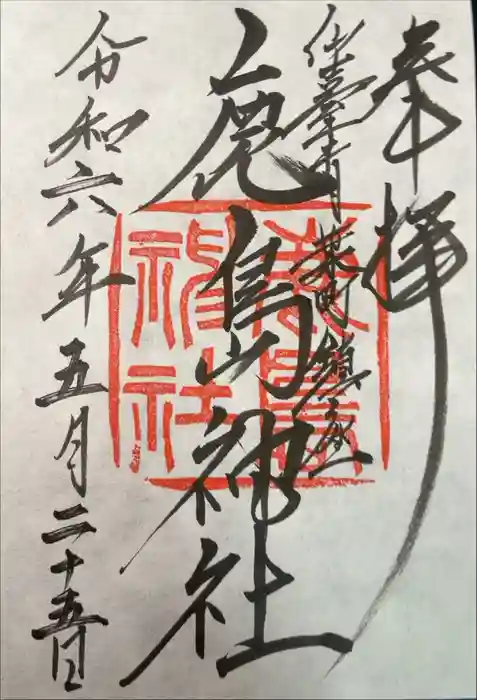 奉拝
仙臺青葉町鎮座
鹿島神社
鹿島神社
令和六年五月二十五日